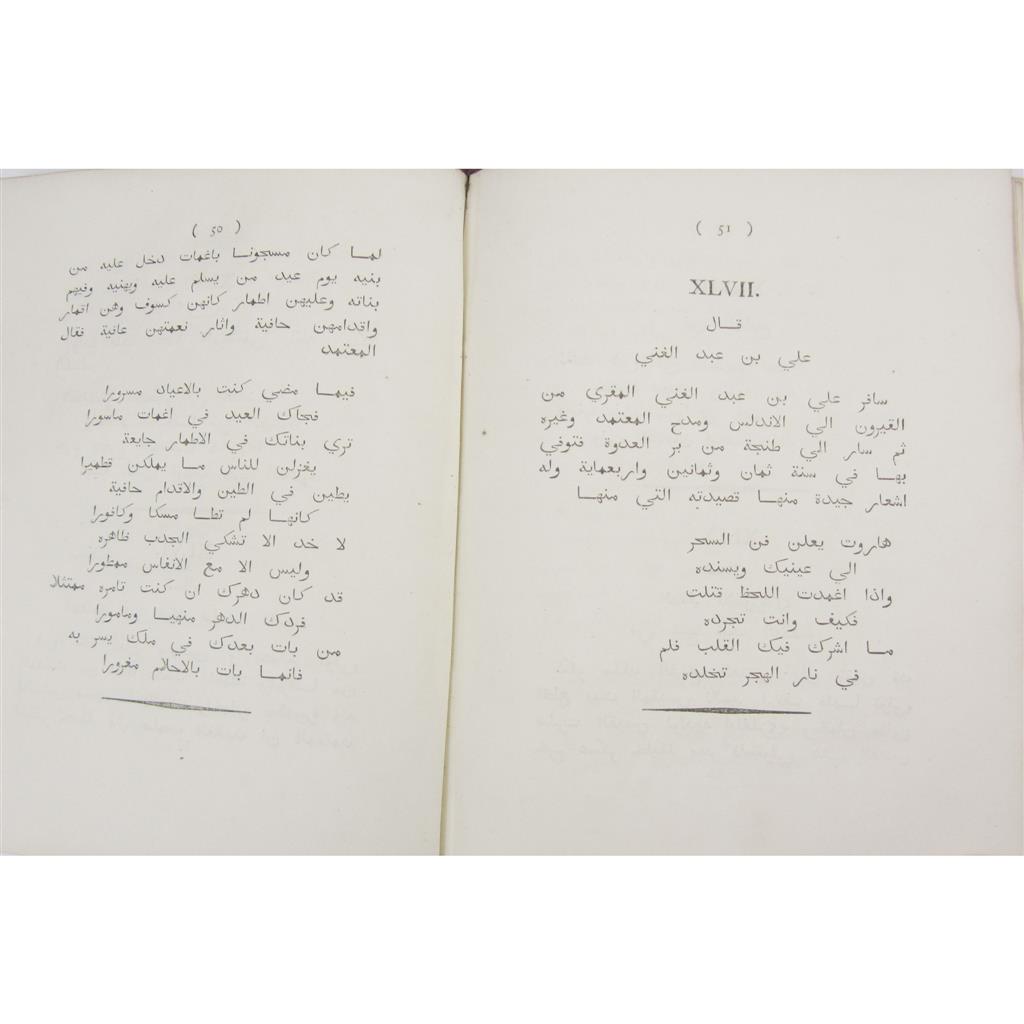 ( 50 )
لما كان مسجونا باغمات دخل عليه من
بنيه يوم عيد من يسلم عليه ويهنيه وفيهم
بناته وعليهن اطمار كانهن كسوف وهن اقمار
واقدامهن حافية واثار نعمتهن عافية فقال
المعتمد
فيما مضي كنت بالاعياد مسرورا
فجاك العيد في اغمات ماسورا
تري بناتك في الاطمار جايعة
يغزلن للناس ما يملكن قطميرا
يطين في الطين والاقدام حافية
كانها لم تطا مسكا وكافورا
لا خد الا تشكي الجدب ظاهره
وليس الا مع الانفاس ممطورا
قد كان دهرك ان كنت تامره ممتثلا
فردك الدهر منهيا ومامورا
من بات بعدك في ملك يسر به
فانما بات بالاحلام مغرورا
( 51 )
XLVII.
قال
علي بن عبد الغني
سافر علي بن عبد الغني المقري من
القيرون الي الاندلس ومدح المعتمد وغيره
ثم سار الي طنجة من بر العدوة فتوفي
بها في سنة ثمان وثمانين واربعماية وله
اشعار جيدة منها قصيدته التي منها
هاروت يعلن فن السحر
الي عينيك ويسنده
واذا اغمدت اللحظ قتلت
فكيف وانت تجرده
ما اشرك فيك القلب فلم
في نار الهجر تخلده